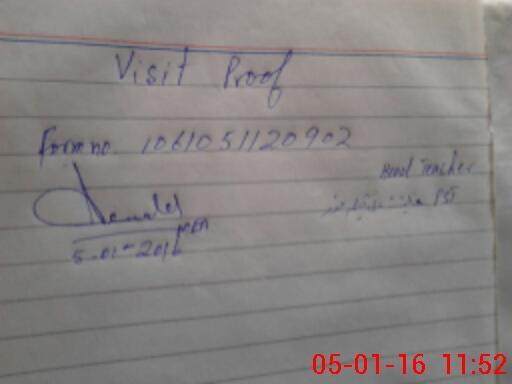 Visit Proof
Form no. 1061051120902
Head Teacher
MEA
5-01-2016
05-01-16 11:52